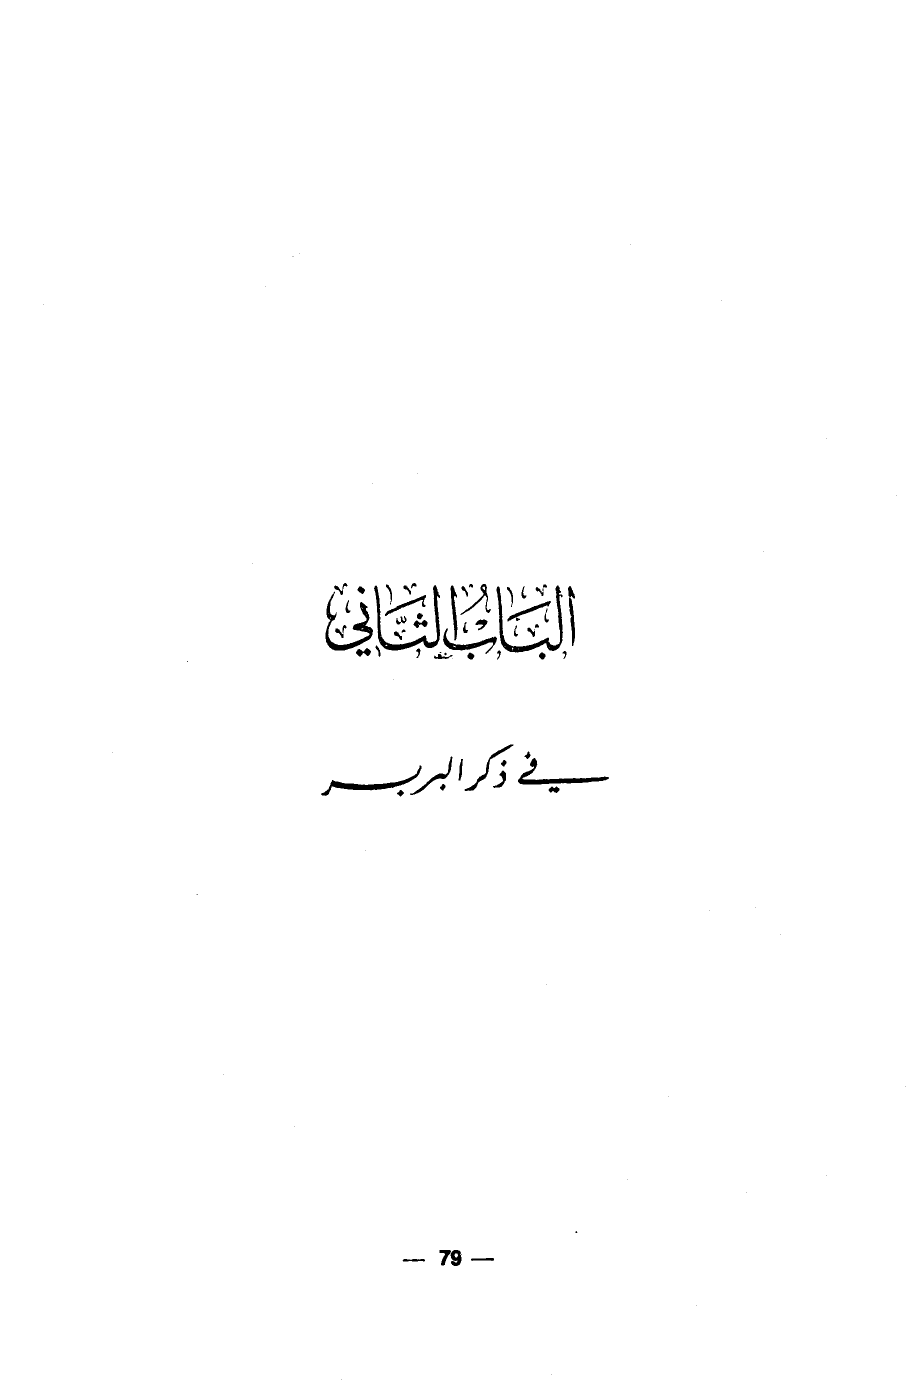 البَابُ الثَّاني
في ذكر البربر
— 79 —